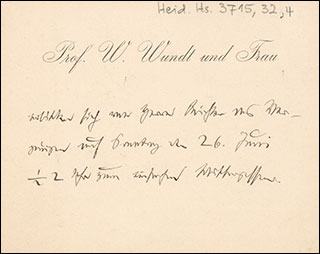 Heid. Hs. 3715, 32,4
Prof. W. Wundt und Frau
sich von Herrn das Ver-
gnügen auf Sonntag den 26. Juni
½ 2 Uhr zum einfachen Mittagessen.